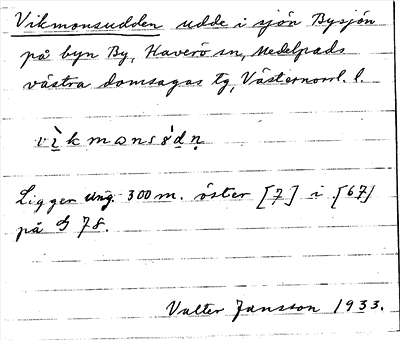 Vikmonsudden udde i sjön Bysjön
på byn By, Haverö sn, Medelpads
västra domsagas tg, Västernorrl. l.
vìkmansu̇dn̥
Ligger ung. 300 m. öster [7] i [67]
på G 78.
Valter Jansson 1933.